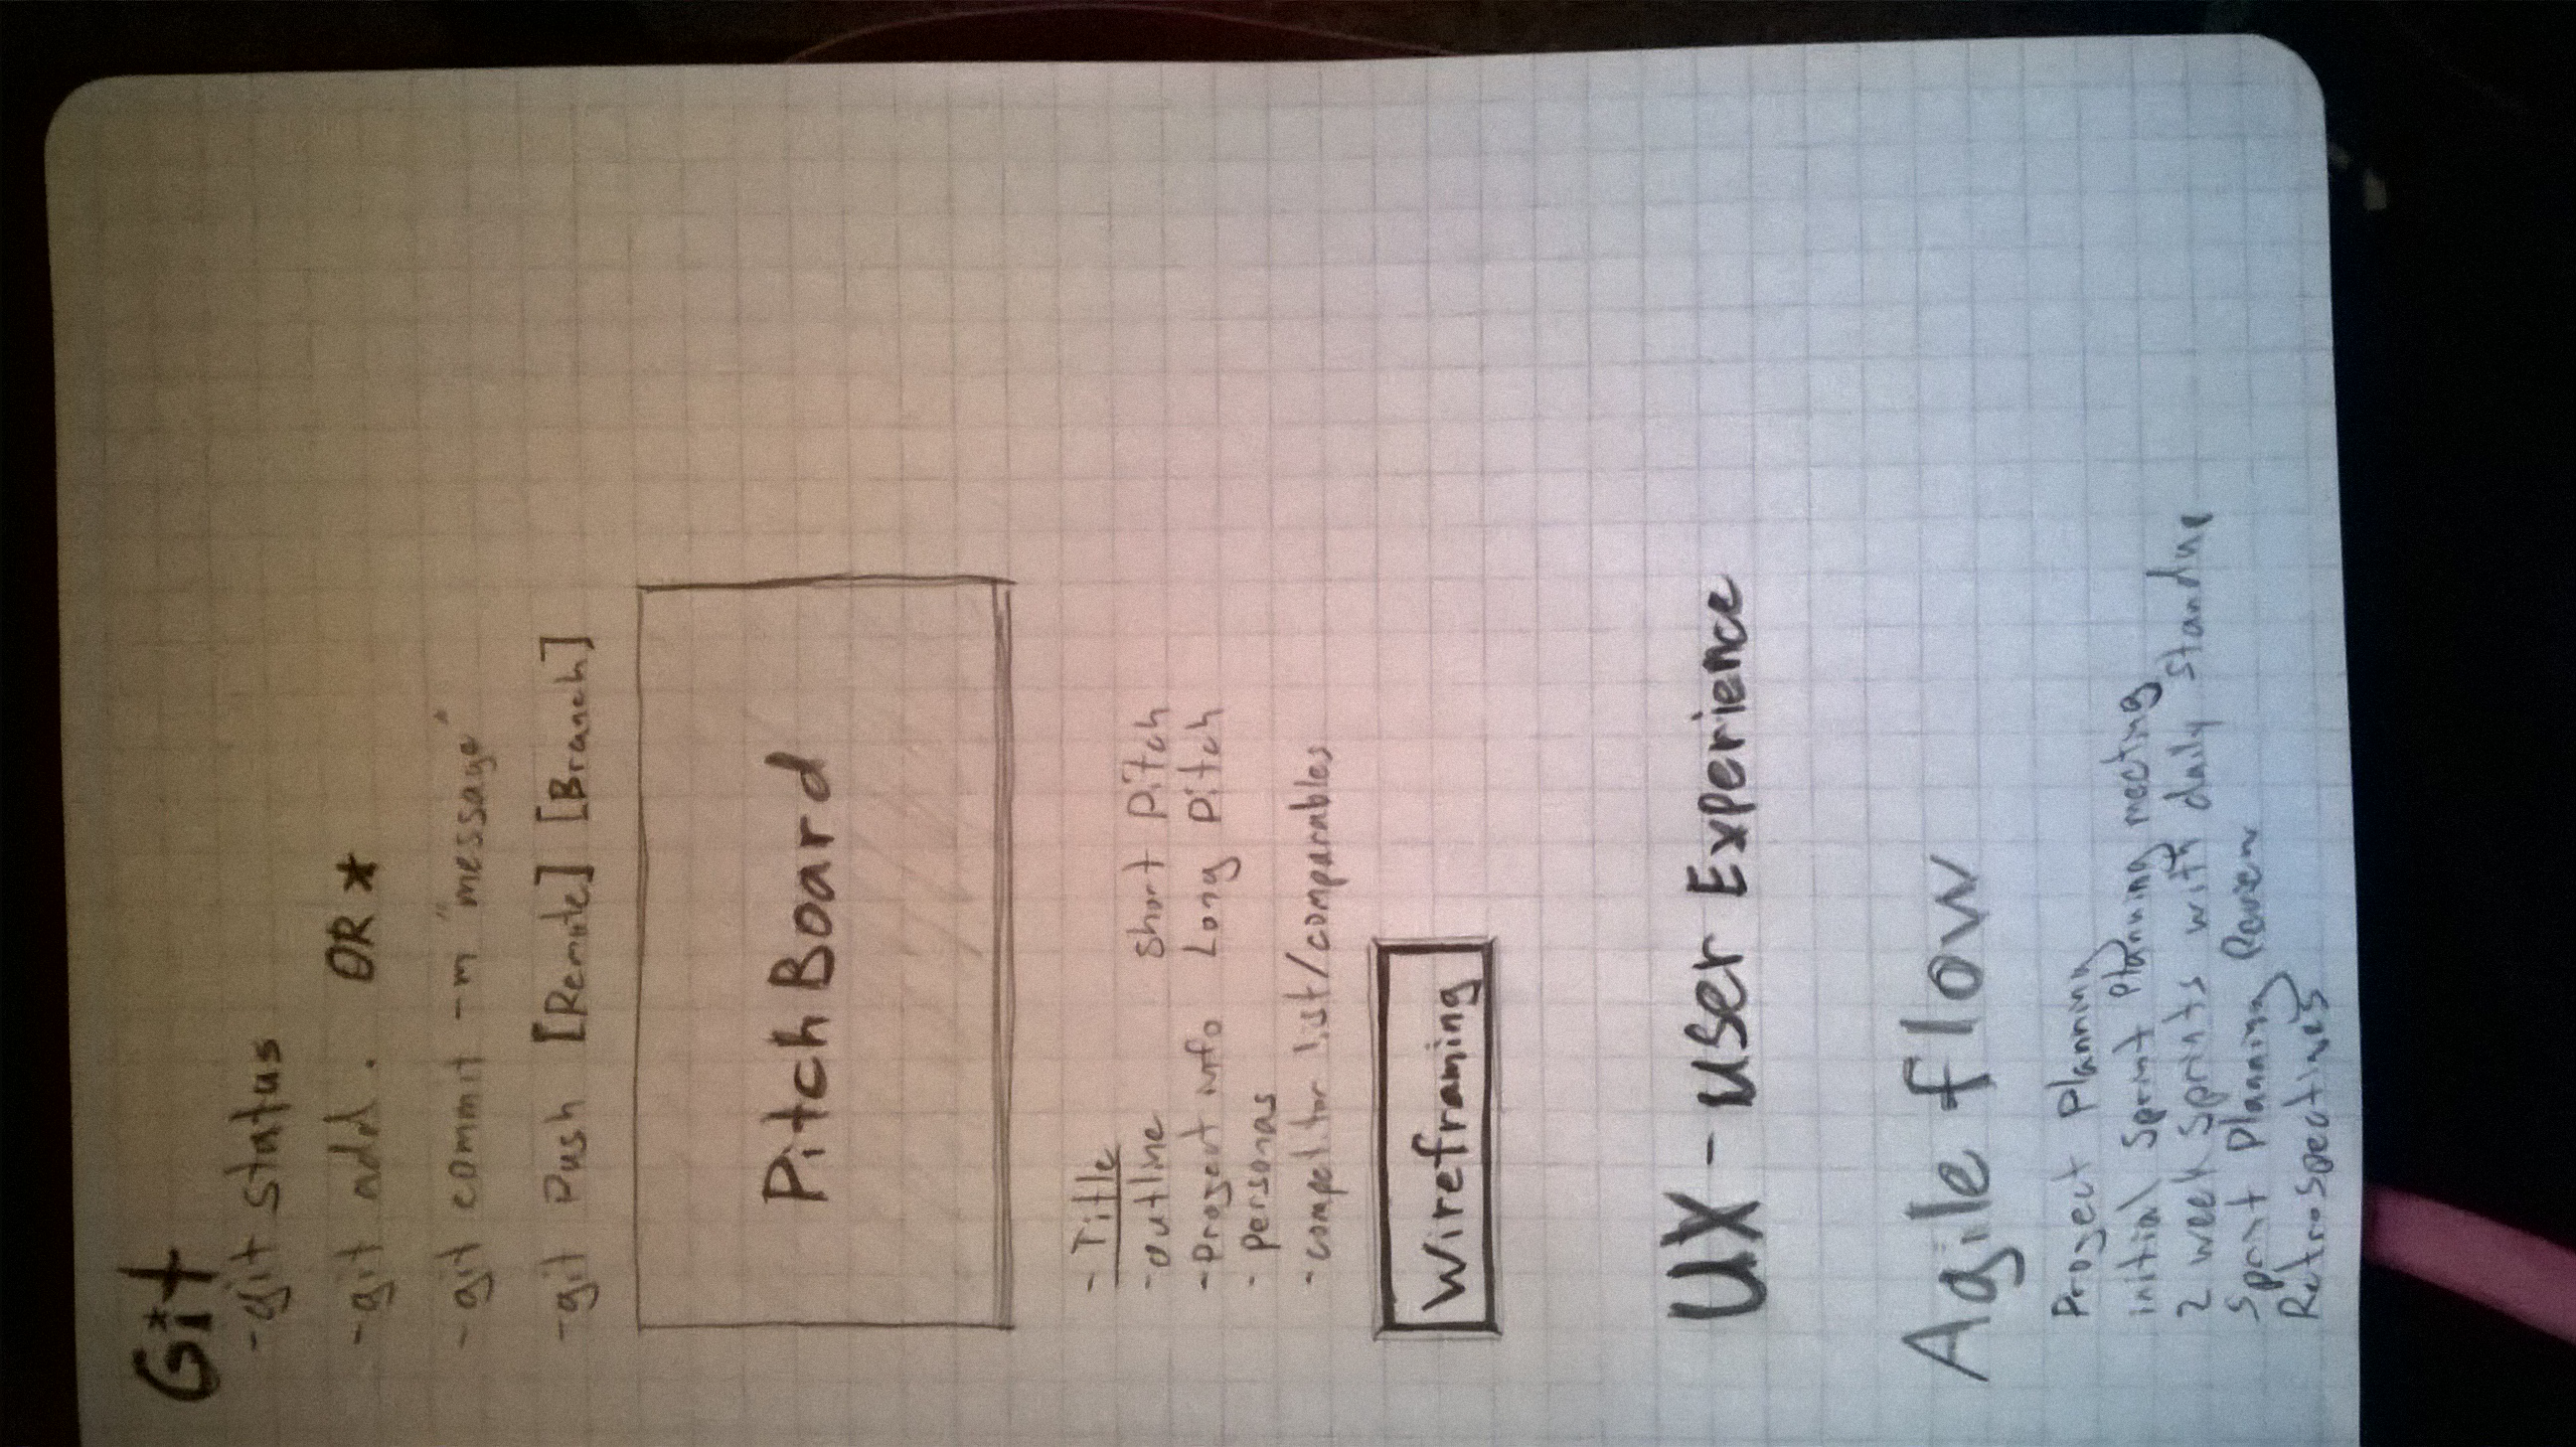 Git
- git status
- git add . OR *
- git commit -m "message"
- git Push [Remote] [Branch]
Pitch Board
- Title
- outline short pitch
- Project info Long pitch
- personas
- competitor list/comparables
Wireframing
UX - User Experience
Agile flow
Project Planning
initial Sprint planning meeting
2 week Sprints with daily standup
Sprint Planning
Retrospectives